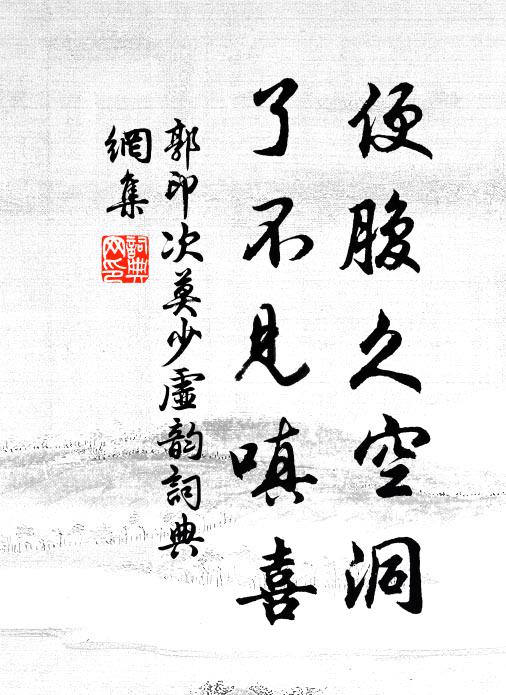 便腹久空洞
了不見嗔喜
郭印次莫少虛韵詞典
網集
詞典網印